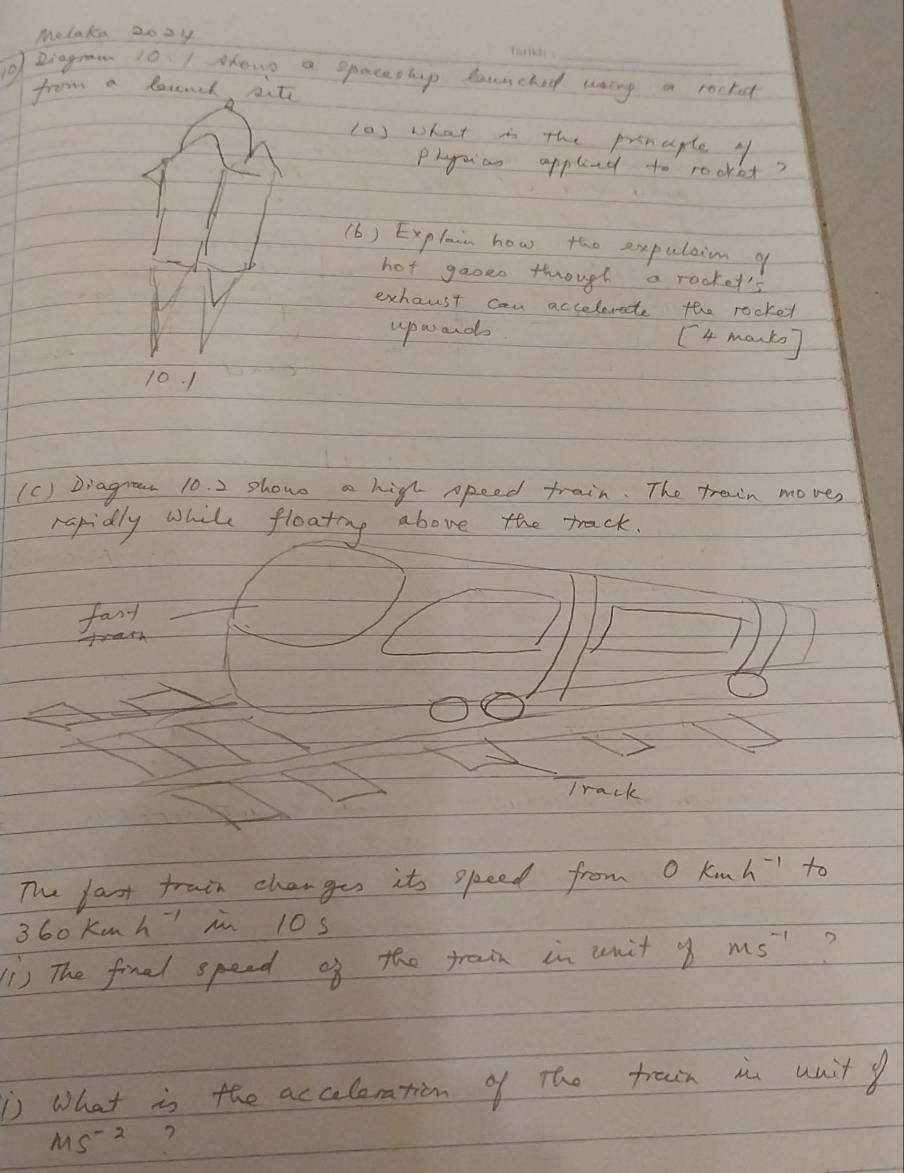 Melaka 2024
Tarikh
10) Diagram 10.1 shows a spaceship launched using a rocket
from a launch site
(a) What is the principle of
physics applied to rocket?
(b) Explain how the expulsion of
hot gases through a rocket's
exhaust can accelerate the rocket
upwards [4 marks]
10.1
(c) Diagram 10.2 shows a high speed train. The train moves
rapidly while floating above the track.
fast
train
Track
The fast train changes its speed from 0 Kmh⁻¹ to
360 Kmh⁻¹ in 10 s
i) The final speed of the train in unit of ms⁻¹ ?
i) What is the acceleration of the train in unit of
ms⁻² ?